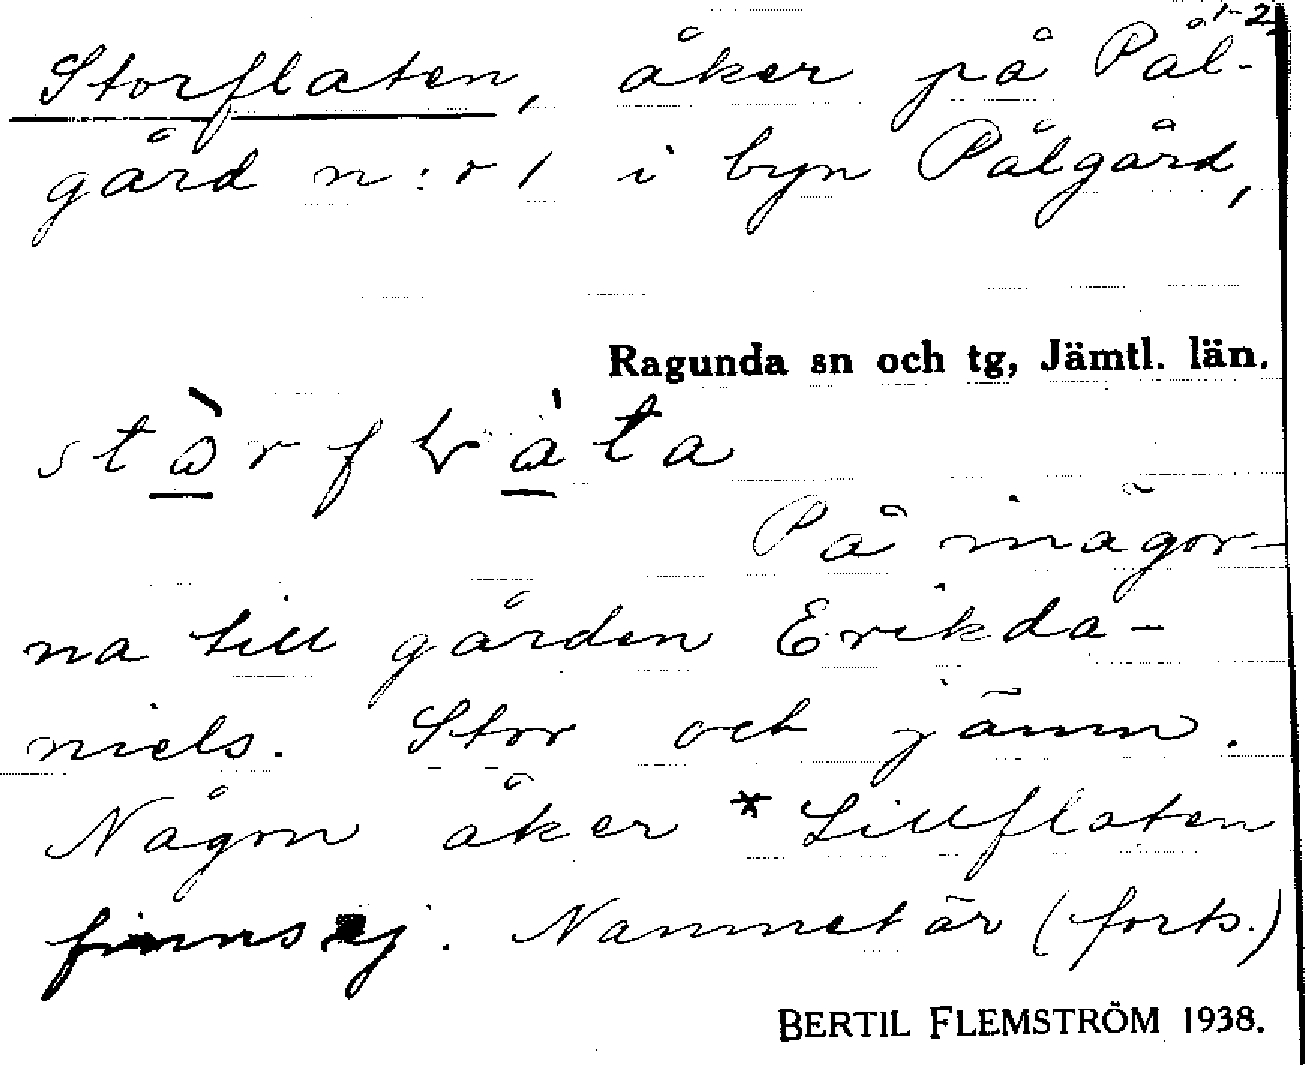 1-2
Storflaten, åker på Pål-
gård n:r 1 i byn Pålgård,
Ragunda sn och tg, Jämtl. län.
På inägor-
na till gården Erikda-
niels. Stor och jämn.
Någon åker * Lillflaten
finns ej. Namnet är (forts.)
BERTIL FLEMSTRÖM 1938.